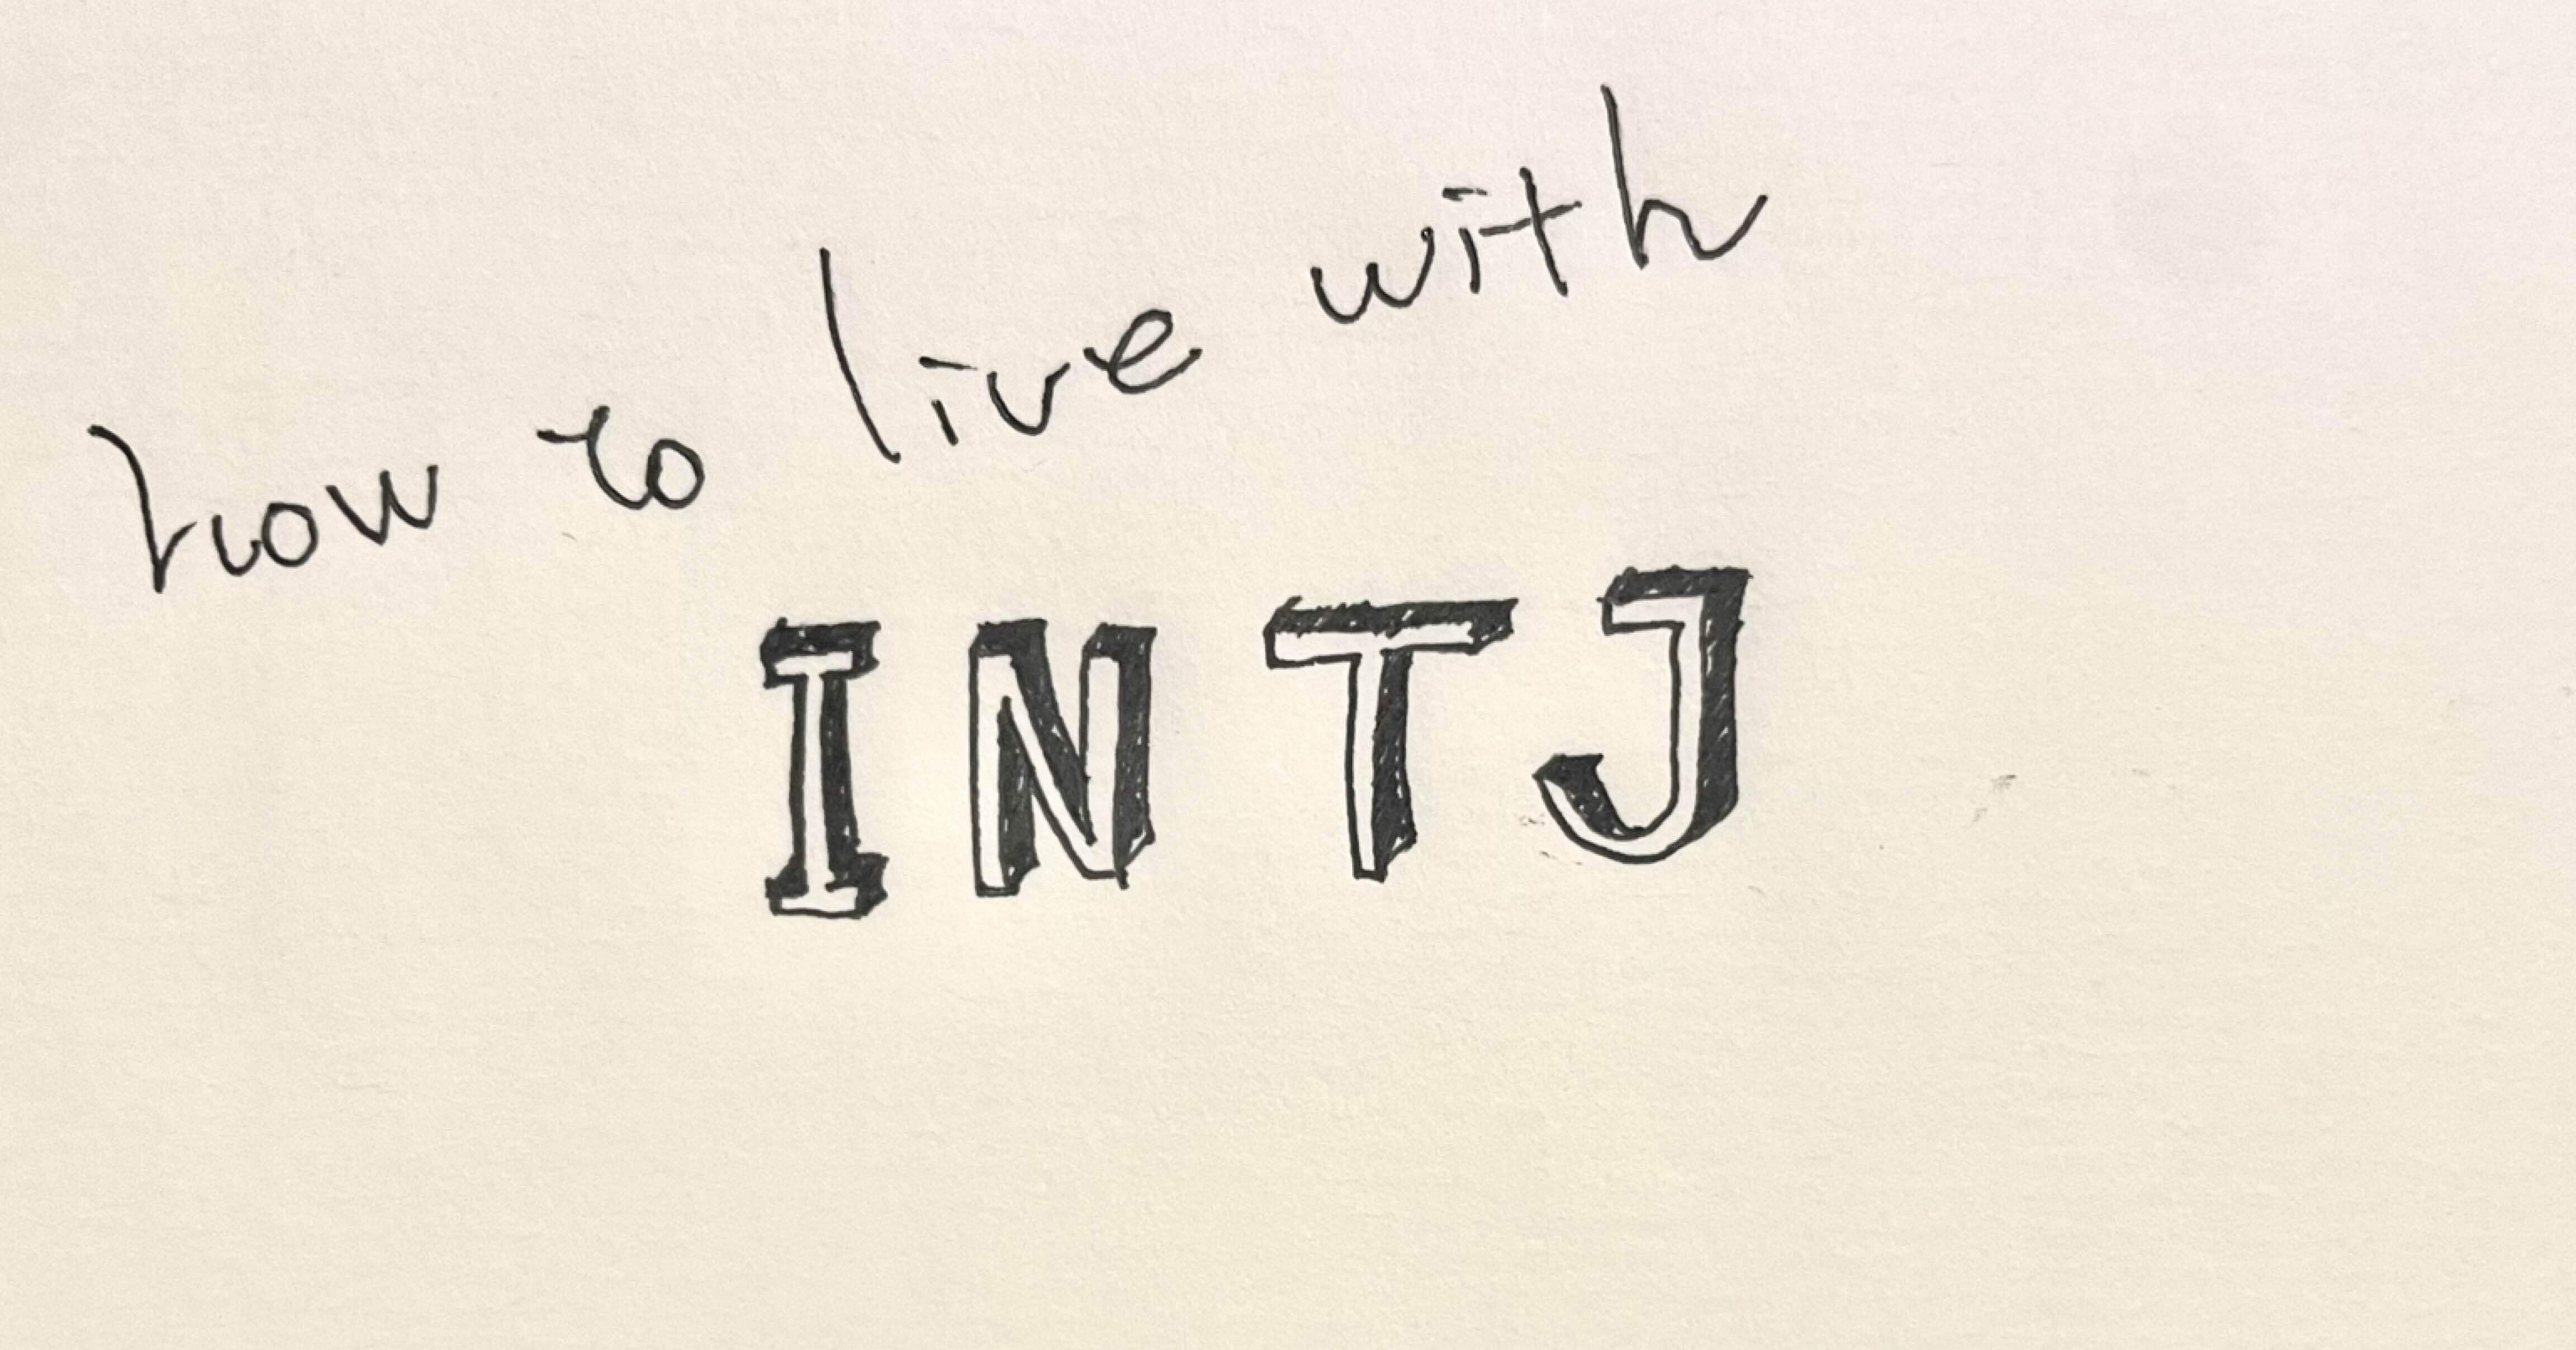 how to live with
INTJ